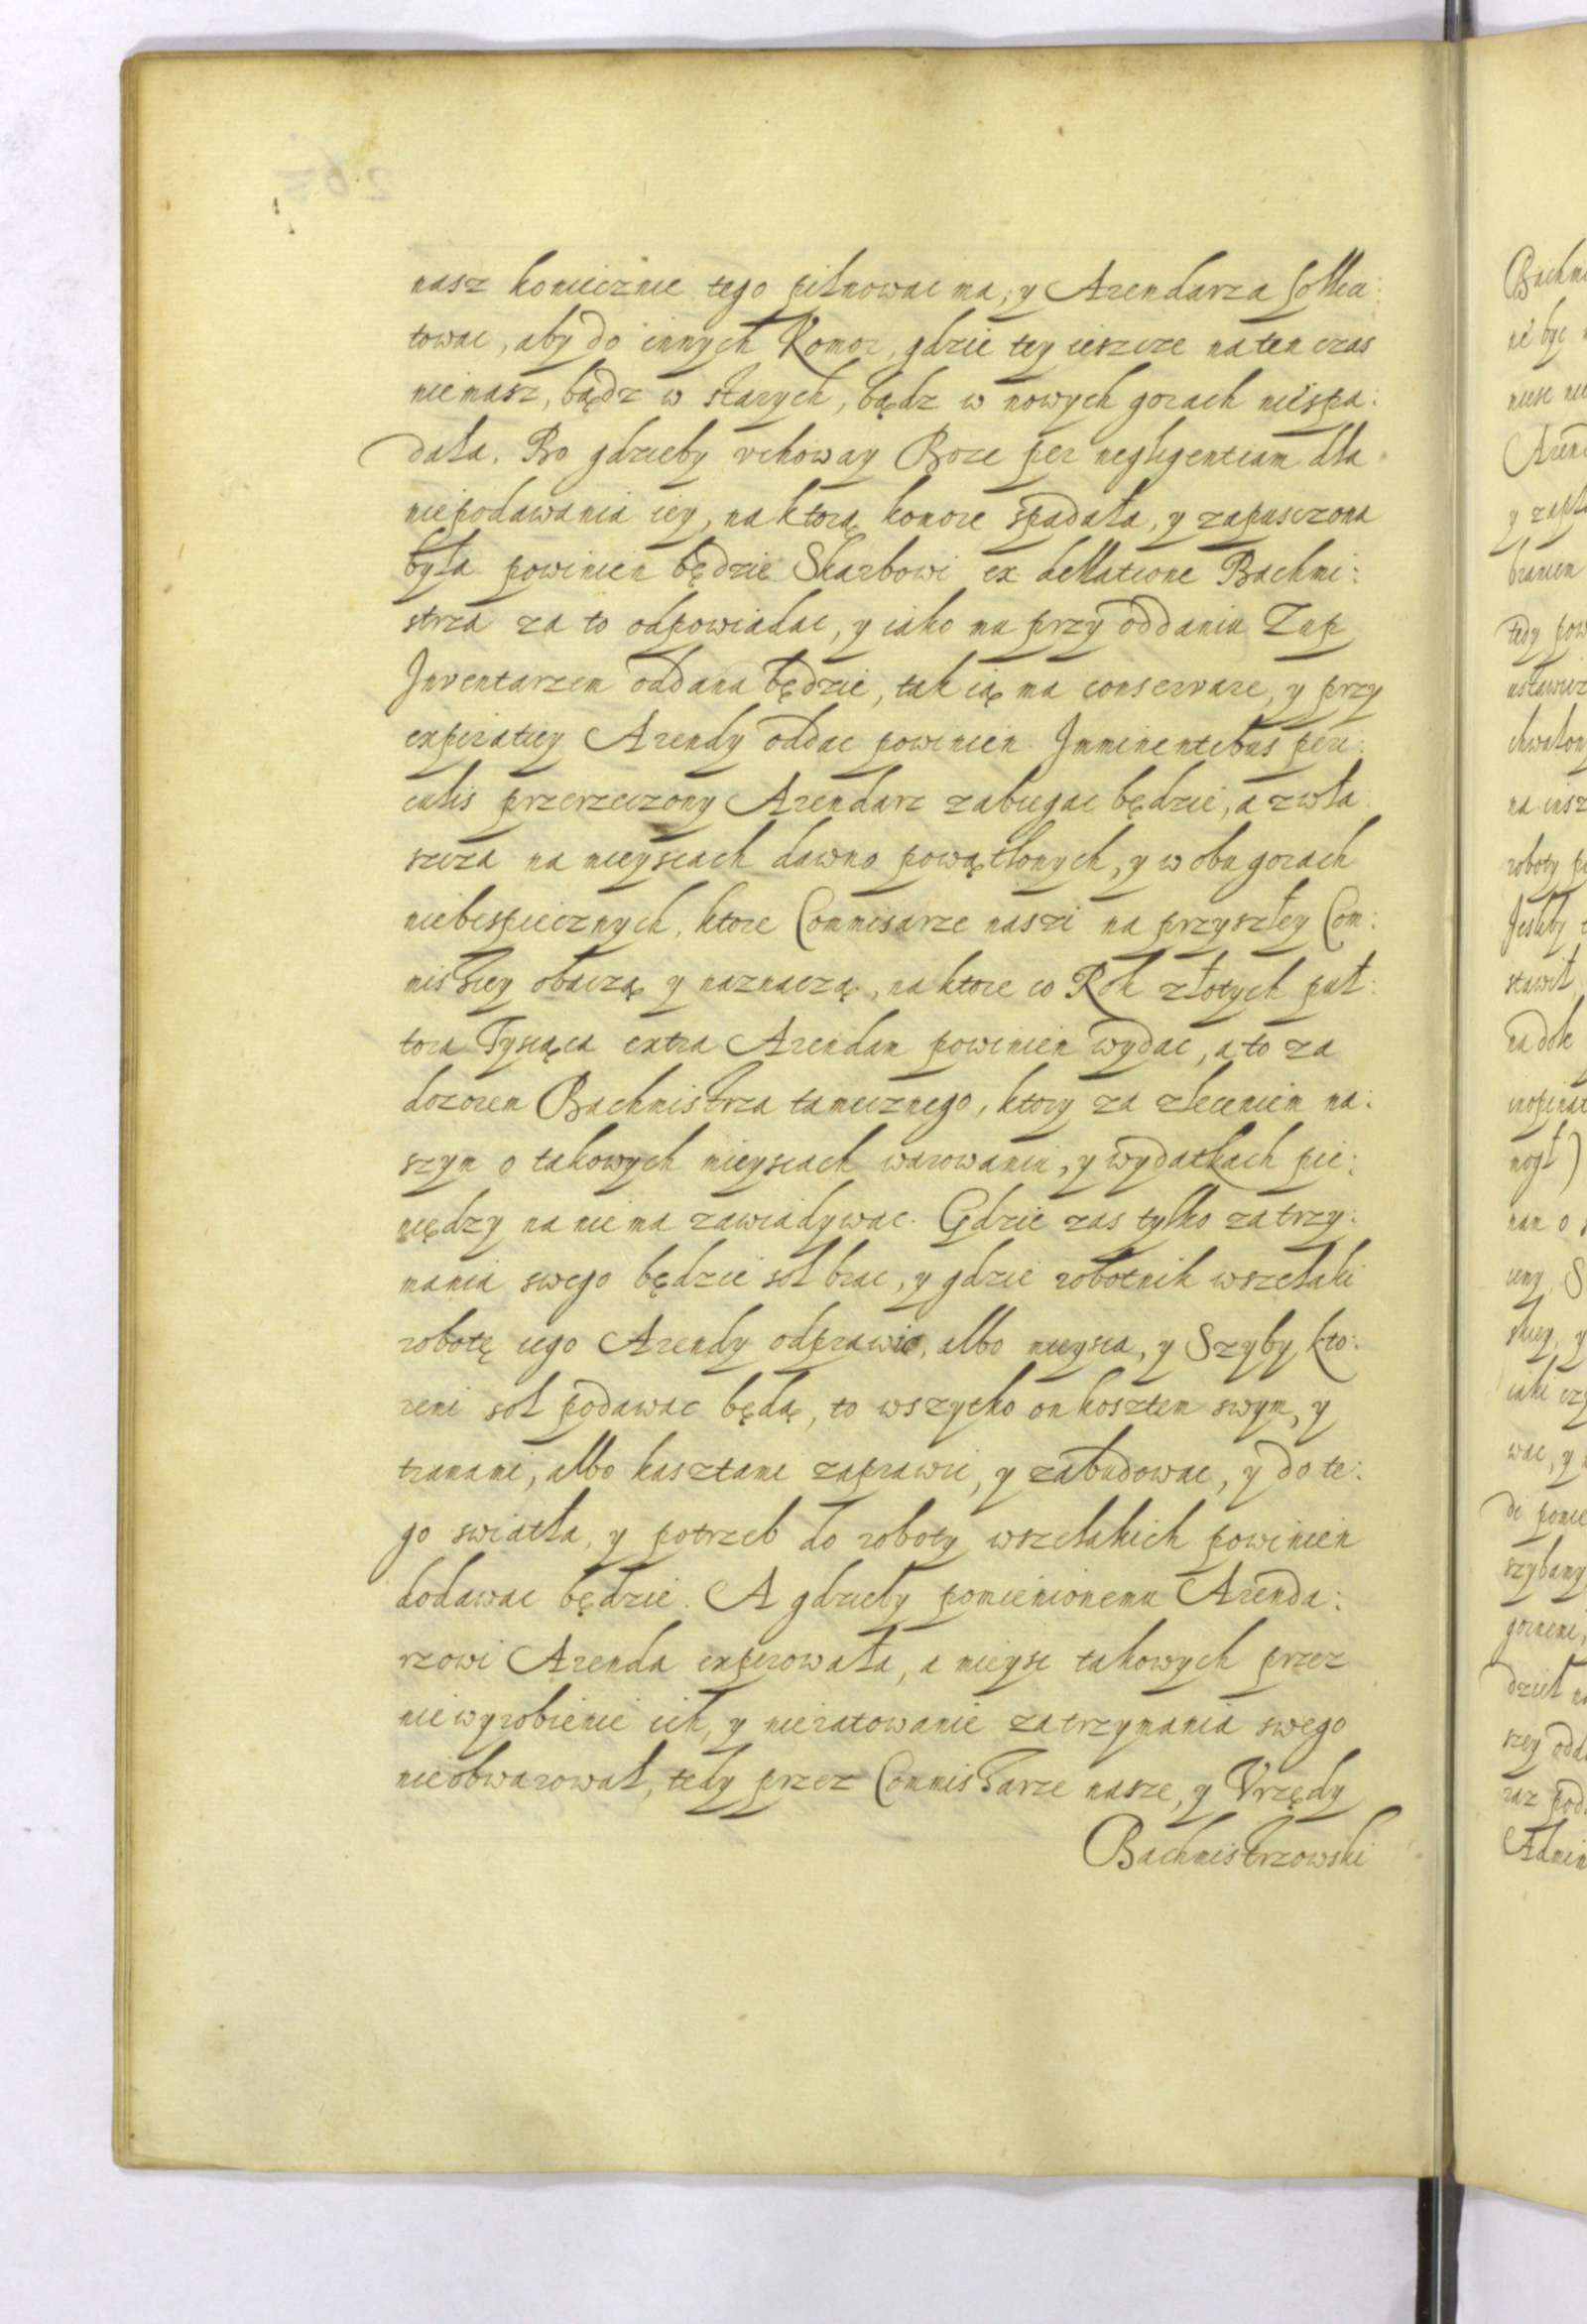 nasz koniecznie tego pilnowac ma, y Arendarza sollici:
towac, aby do innych Komor, gdzie tey ieszcze na ten czas
niemasz, bądz w starych, bądz w nowych gorach niespa:
dała. Bo gdzieby vchoway Boze per negligentiam dla
niepodawania iey, na ktorą komorę spadała, y zapusczona
była powinien będzie Skarbowi ex dellatione Bachmi:
strza za to odpowiadac, y iako mu przy oddaniu Zup
Inventarzem oddana będzie, tak ią ma conservare, y przy
expiratiey Arendy oddac powinien. Imminentibus peri:
culis przerzeczony Arendarz zabiegac będzie, a zwła:
szcza na mieyscach dawno powątlonych, y w obu gorach
niebespiecznych, ktore Commisarze naszi na przyszłey Com:
missiey obaczą y naznaczą, na ktore co Rok złotych puł:
tora Tysiąca extra Arendam powinien wydac, a to za
dozorem Bachmistrza tamecznego, ktory za zleceniem na:
szym o takowych mieyscach warowaniu, y wydatkach pie:
niędzy na nie ma zawiadywac. Gdzie zas tylko za trzy:
mania swego będzie sol brac, y gdzie robotnik wszelaki
robotę iego Arendy odprawic, albo mieysca, y Szyby, kto:
remi sol podawac będą, to wszytko on kosztem swym, y
tramami, albo kasztami zaprawic, y zabudowac, y do te:
go swiatła, y potrzeb do roboty wszelakich powinien
dodawac będzie. A gdzieby pomienionemu Arenda:
rzowi Arenda expirowała, a mieysc takowych przez
niewyrobienie ich, y nieratowanie za trzymania swego
nieobwarował, tedy przez Commissarze nasze, y Vrzędy
Bachmistrzowski
Bachmi